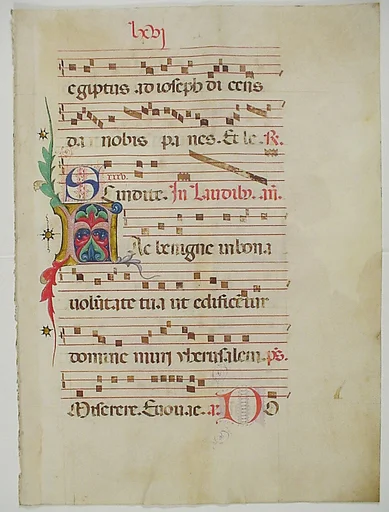 lxvj
egiptus ad ioseph di cens
da nobis pa nes. Et le. R.
SCindite. In Laudib. añ.
FAc benigne in bona
uolũtate tua ut edificẽtur
domine muri yherusalem. ps.
Miserere. Euouae. a. DO